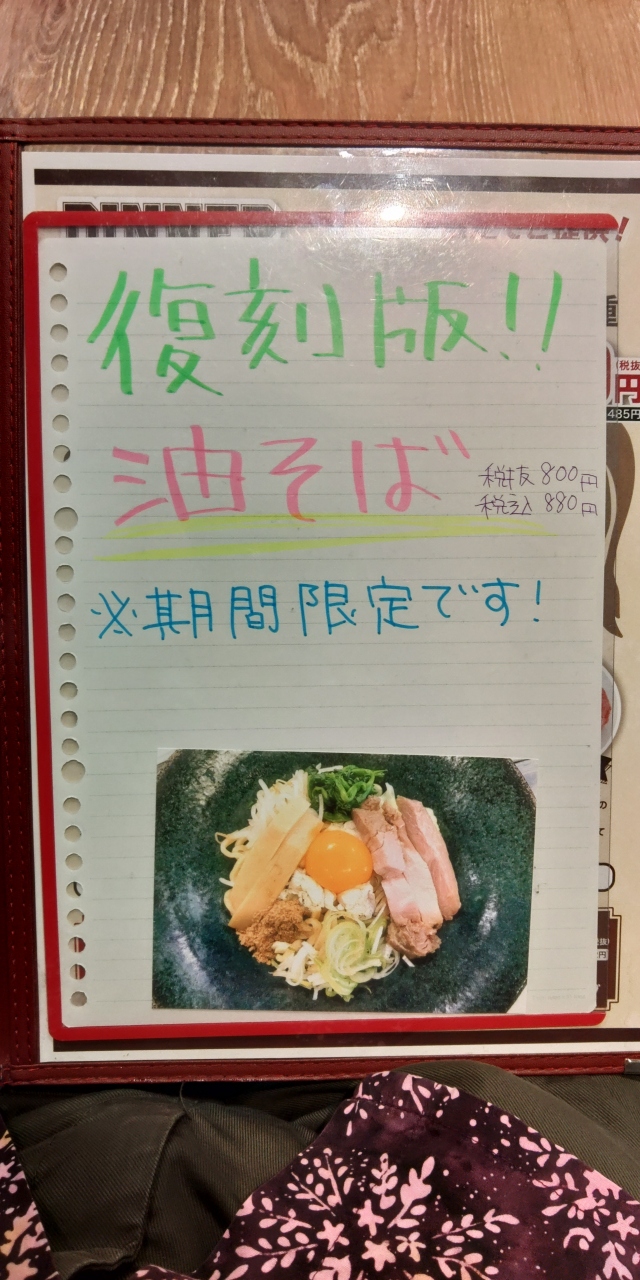 DINNER
復刻版!!
油そば
税抜 800円
税込 880円
※期間限定です!
(税抜
円
485円